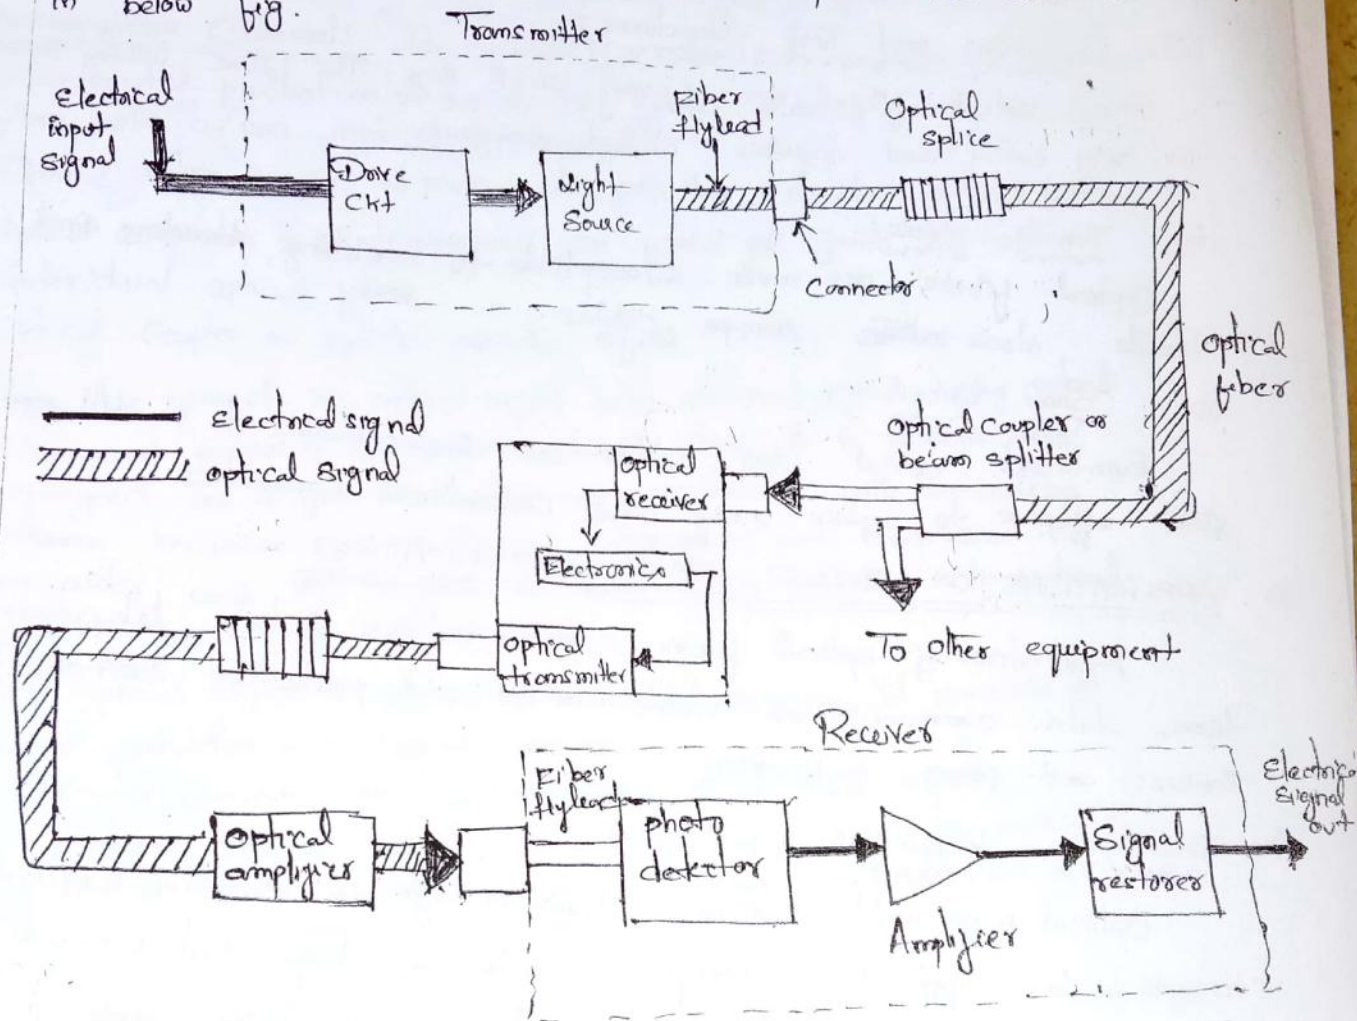 in below fig.
Transmitter
Electrical
input
signal
Drive
Ckt
Light
Source
Fiber
flylead
Optical
splice
Connector
Optical
fiber
Electrical signal
optical signal
Optical coupler or
beam splitter
Optical
receiver
Electronics
Optical
transmitter
To other equipment
Receiver
Fiber
flylead
Optical
amplifier
photo
detector
Amplifier
Signal
restorer
Electrical
signal
out